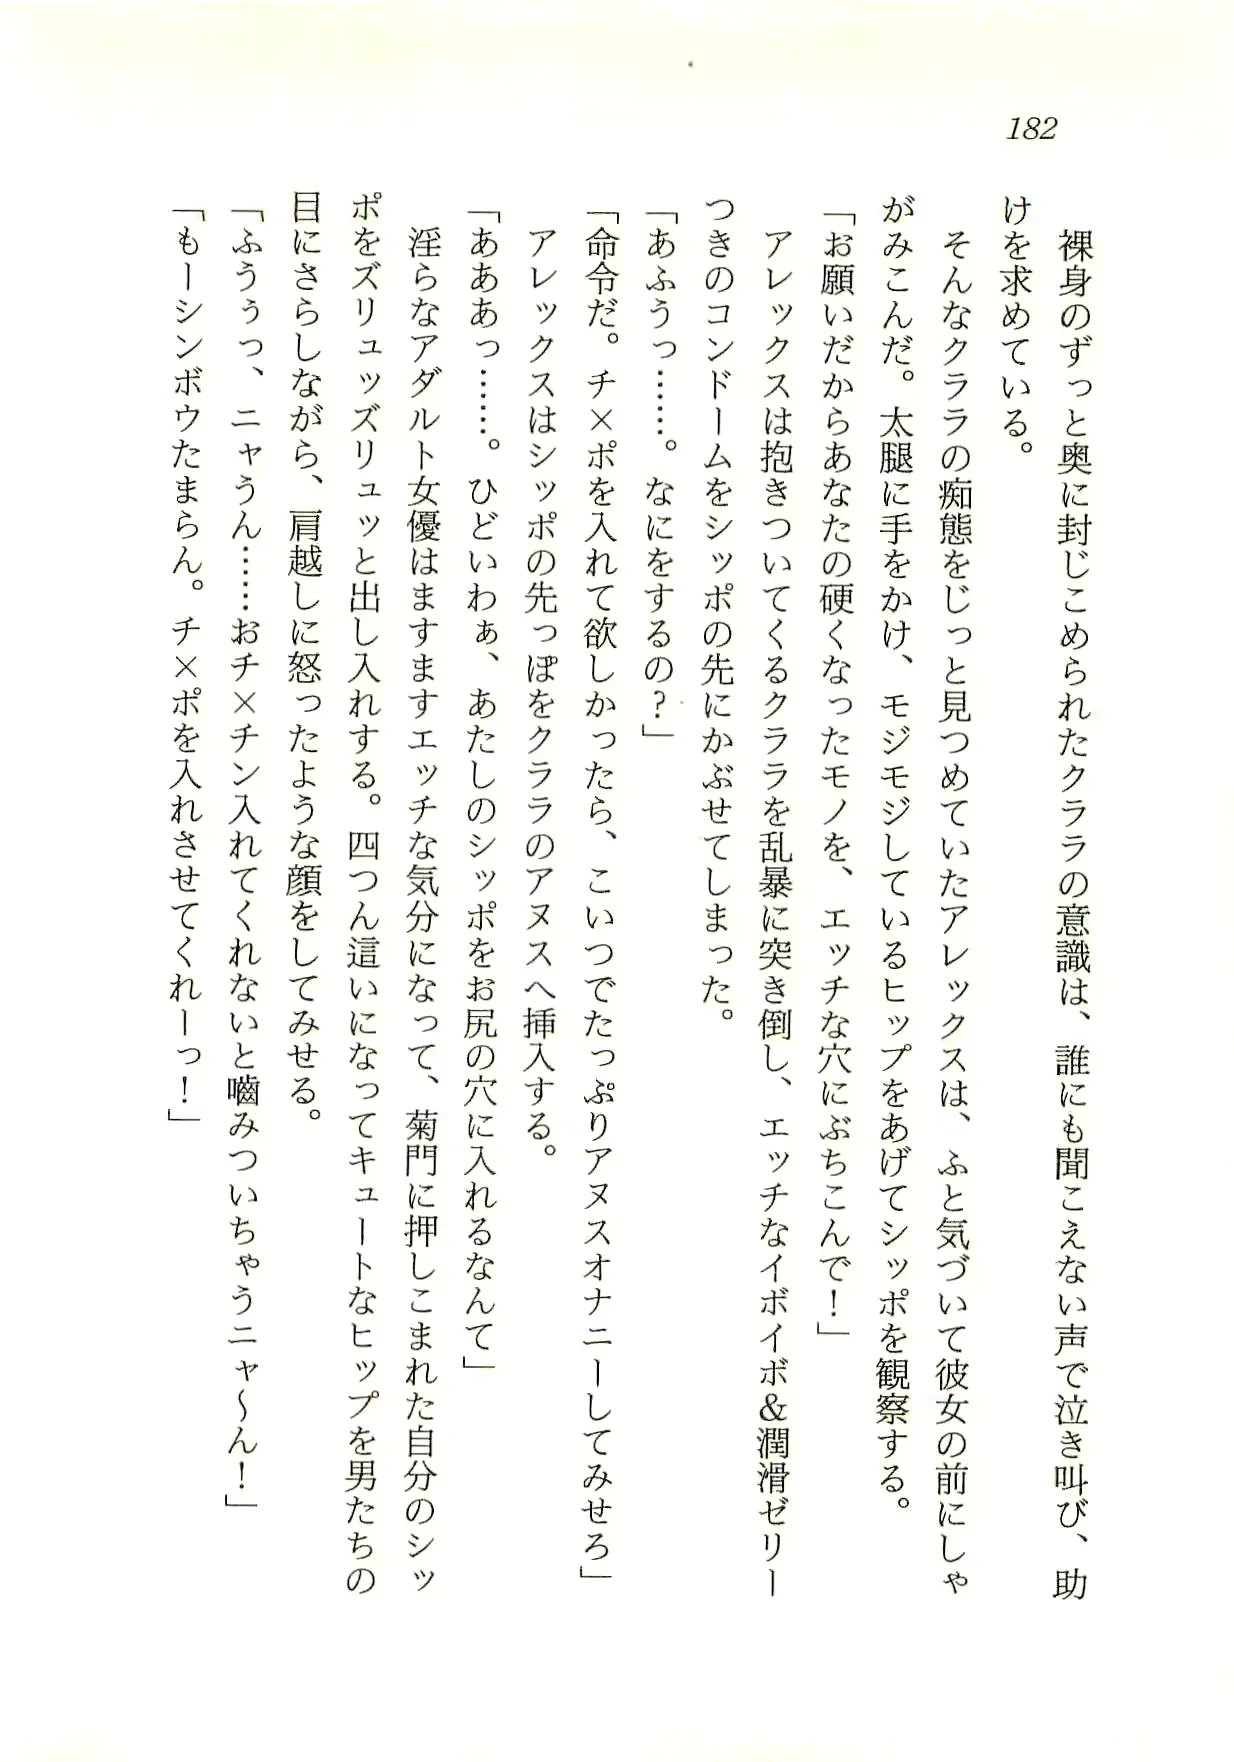 182
裸身のずっと奥に封じこめられたクララの意識は、誰にも聞こえない声で泣き叫び、助
けを求めている。
そんなクララの痴態をじっと見つめていたアレックスは、ふと気づいて彼女の前にしゃ
がみこんだ。太腿に手をかけ、モジモジしているヒップをあげてシッポを観察する。
「お願いだからあなたの硬くなったモノを、エッチな穴にぶちこんで！」
アレックスは抱きついてくるクララを乱暴に突き倒し、エッチなイボイボ＆潤滑ゼリー
つきのコンドームをシッポの先にかぶせてしまった。
「あふうっ……。なにをするの？」
「命令だ。チ×ポを入れて欲しかったら、こいつでたっぷりアヌスオナニーしてみせろ」
アレックスはシッポの先っぽをクララのアヌスへ挿入する。
「あああっ……。ひどいわぁ、あたしのシッポをお尻の穴に入れるなんて」
淫らなアダルト女優はますますエッチな気分になって、菊門に押しこまれた自分のシッ
ポをズリュッズリュッと出し入れする。四つん這いになってキュートなヒップを男たちの
目にさらしながら、肩越しに怒ったような顔をしてみせる。
「ふうぅっ、ニャうん……おチ×チン入れてくれないと嚙みついちゃうニャ～ん！」
「もーシンボウたまらん。チ×ポを入れさせてくれーっ！」